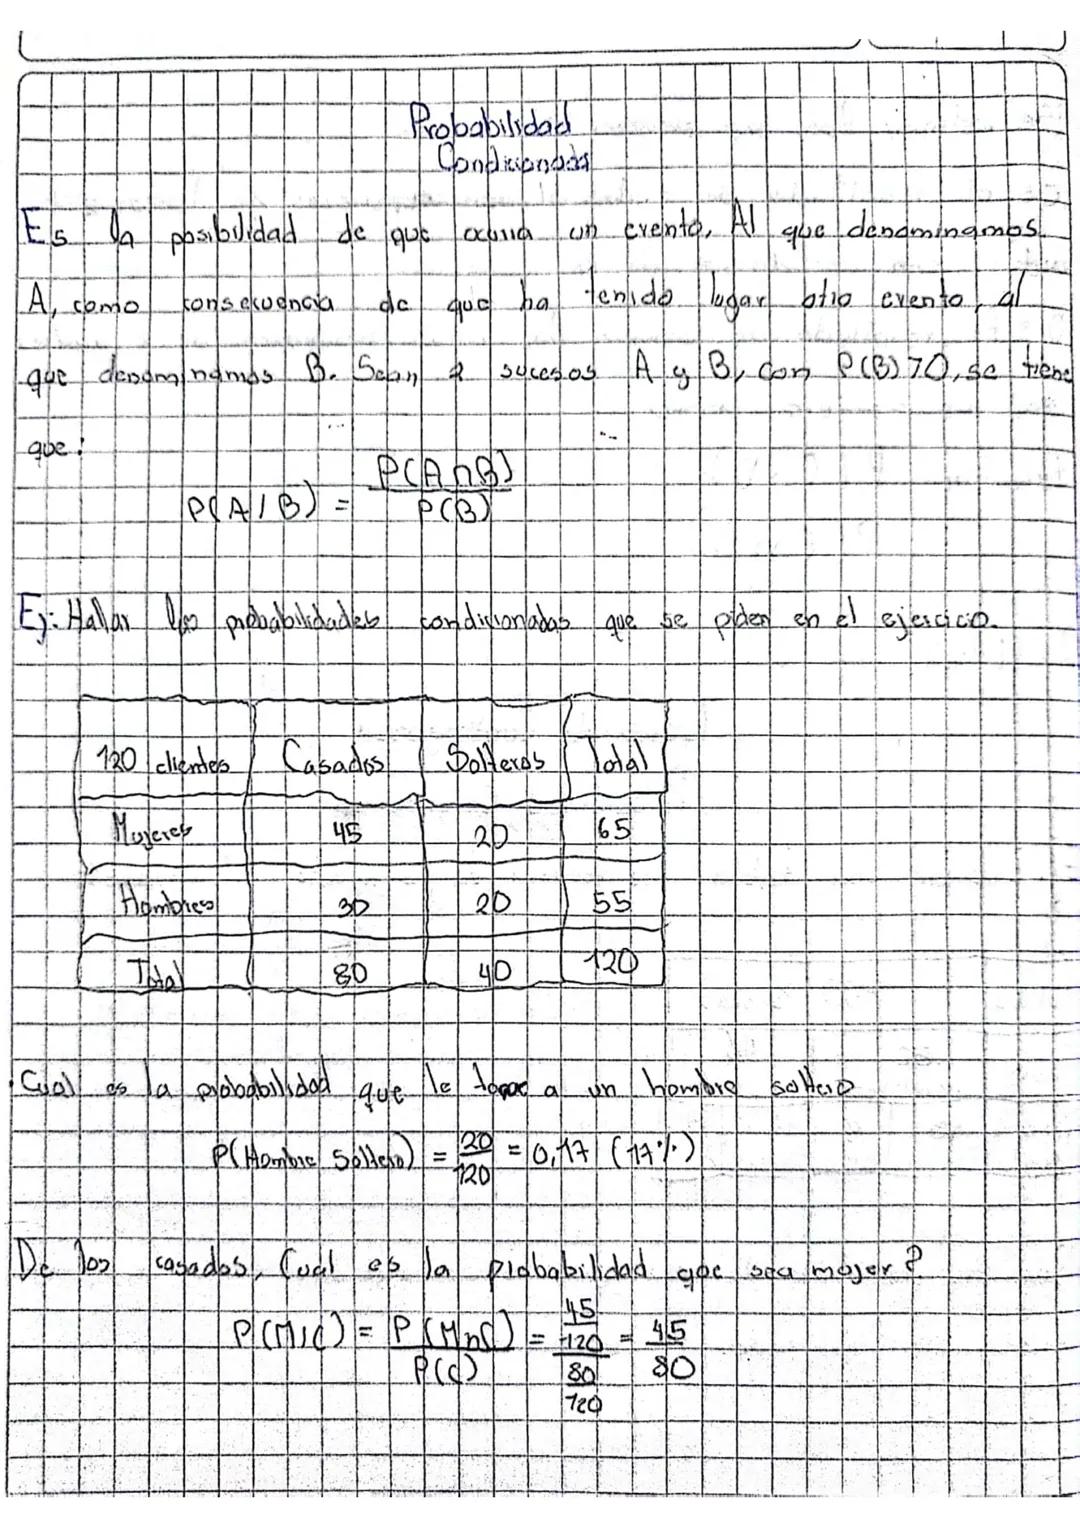 Probabilidad
Condicionada
Es la posibilidad de que ocurra un evento, Al que denominamos
A, como consecuencia de que ha tenido lugar otro evento, al
que denominamos B. Sean 2 sucesos A y B, con P(B)>0, se tiene
que:
P(A/B) = P(A∩B) / P(B)
Ej: Hallar las probabilidades condicionadas que se piden en el ejercicio.
120 clientes Casados Solteros Total
Mujeres 45 20 65
Hombres 30 20 55
Total 80 40 120
Cual es la probabilidad que le toque a un hombre soltero
P(Hombre Soltero) = 20/120 = 0,17 (17%)
De los casados, Cual es la probabilidad que sea mujer?
P(M/C) = P(M∩C) / P(C) = 45/120 / 80/120 = 45/80